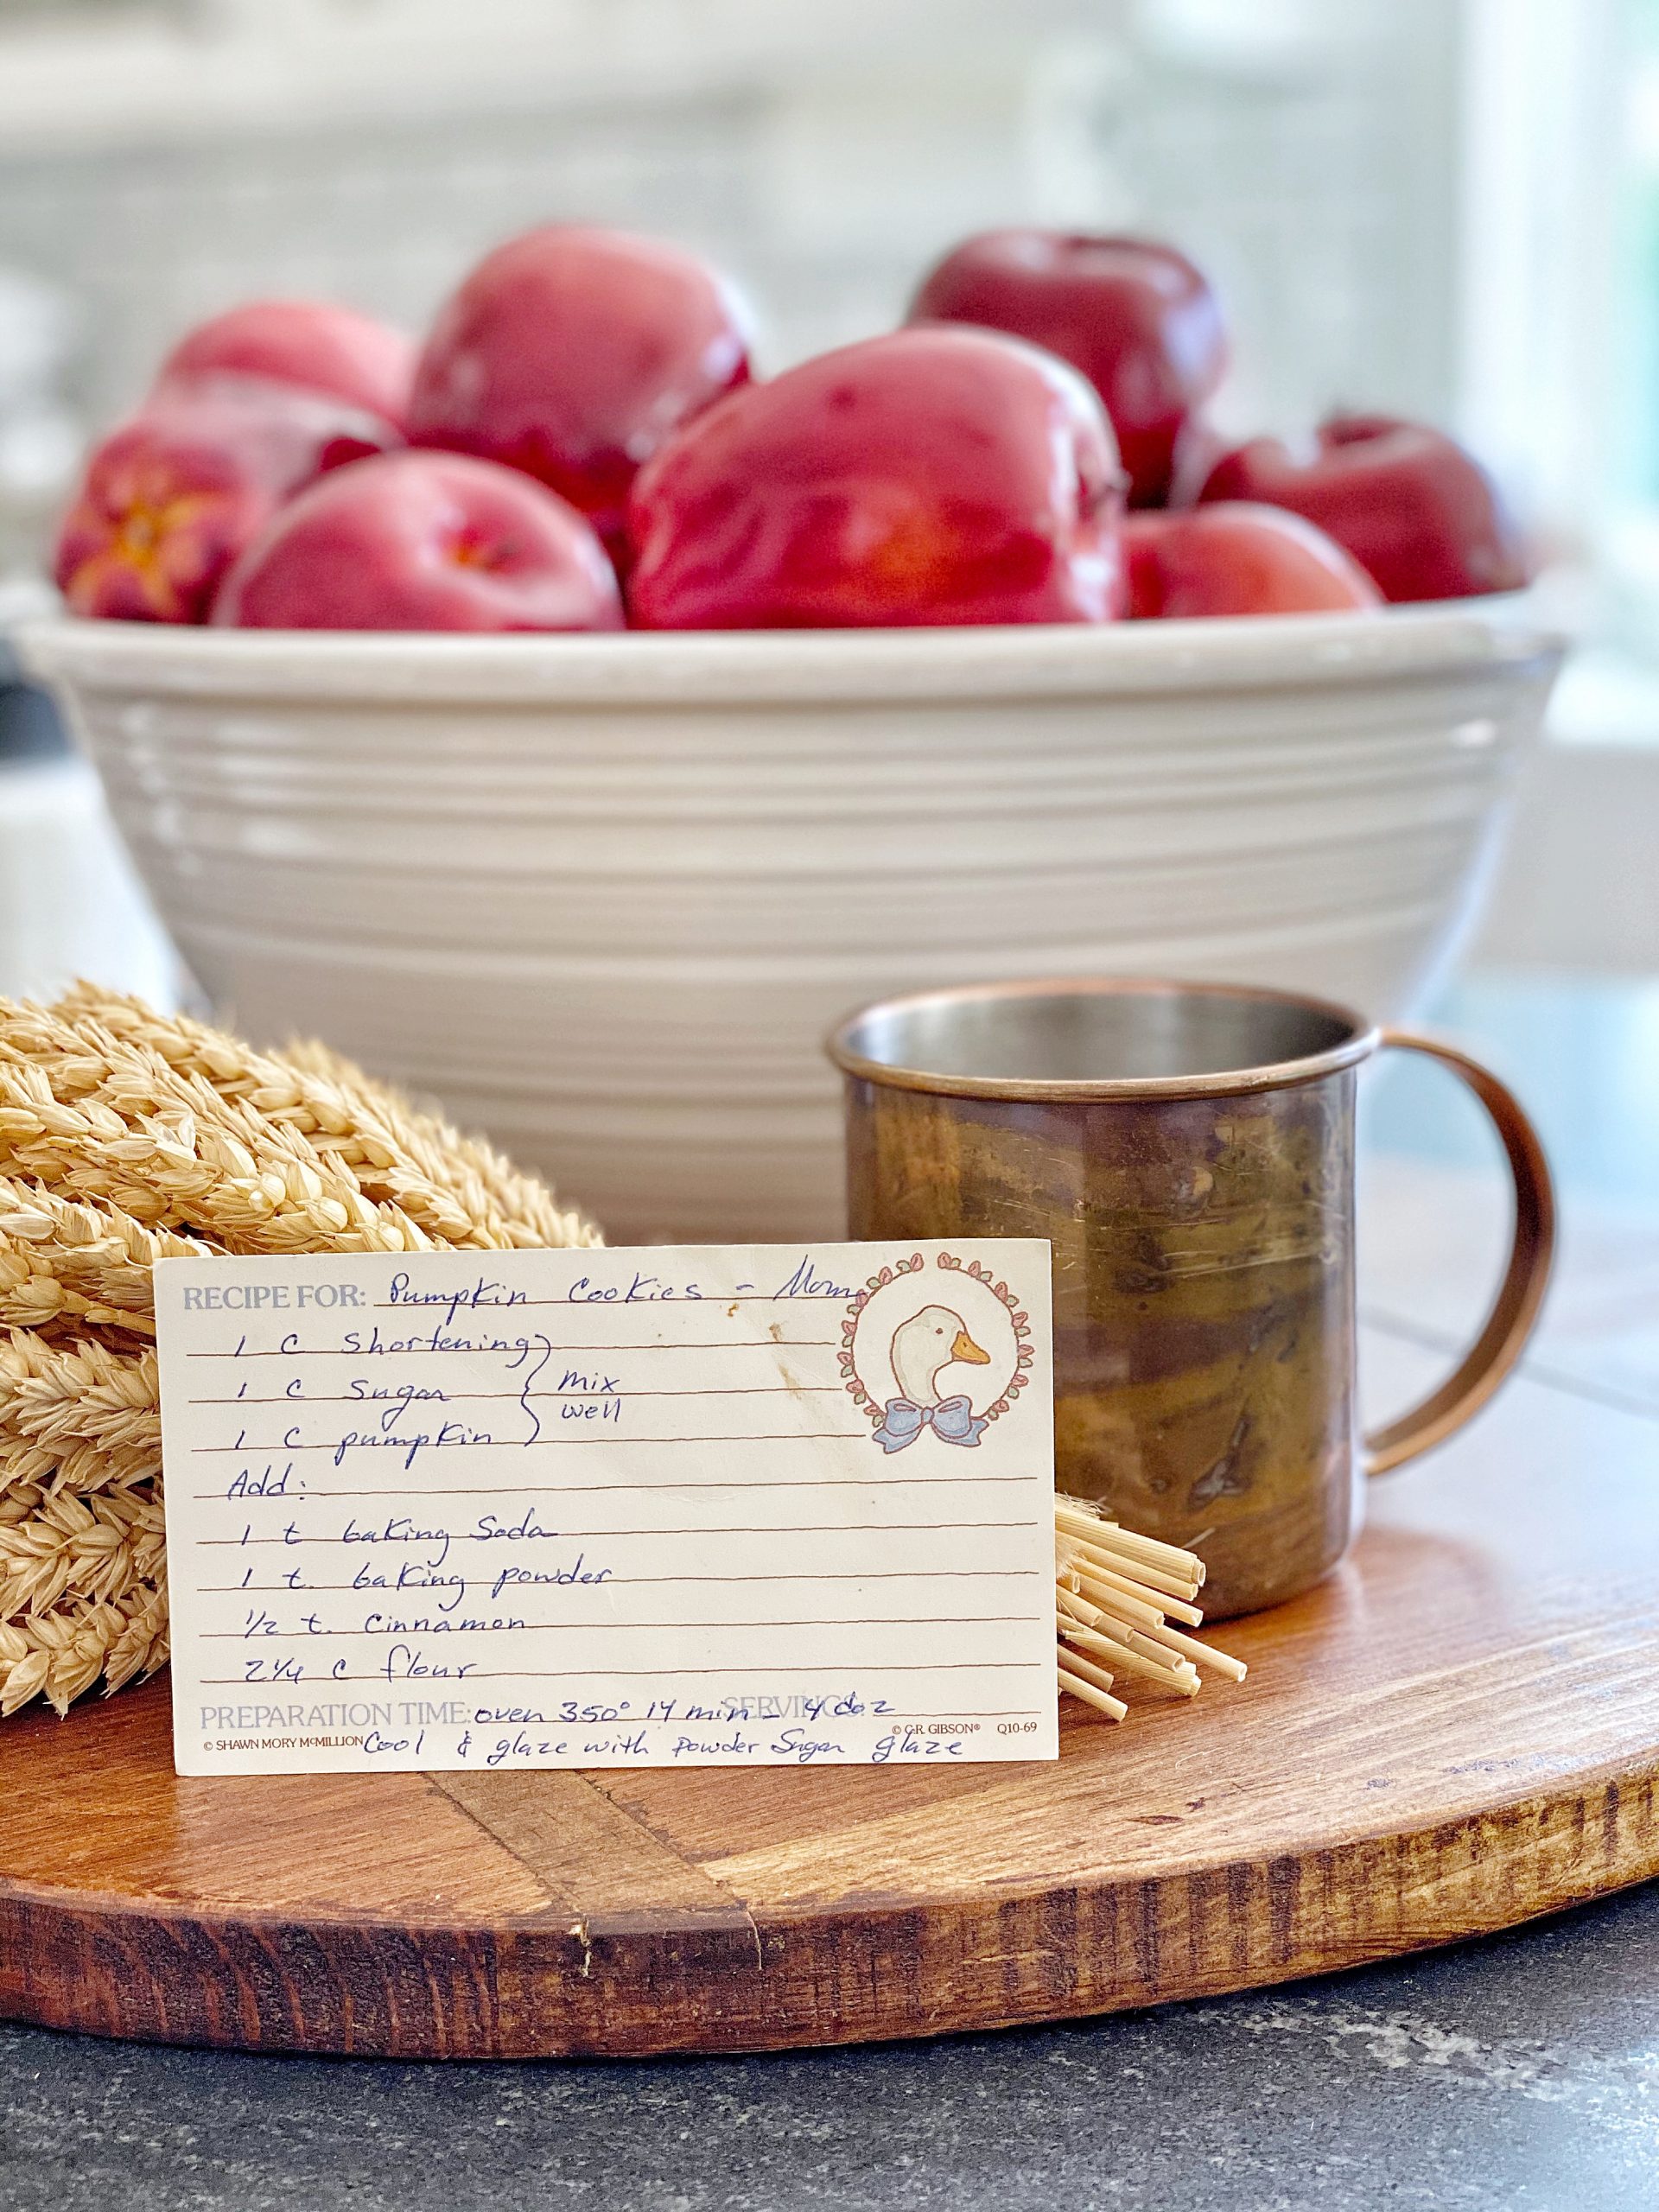 RECIPE FOR: Pumpkin Cookies - Mom
1 c shortening
1 c sugar
mix
well
1 c pumpkin
Add:
1 t baking soda
1 t. baking powder
1/2 t. Cinnamon
2 1/4 c flour
PREPARATION TIME: oven 350° 14 min - SERVINGS: 4 doz
© SHAWN MORY McMILLION © C.R. GIBSON® Q10-69
Cool & glaze with powder Sugar glaze